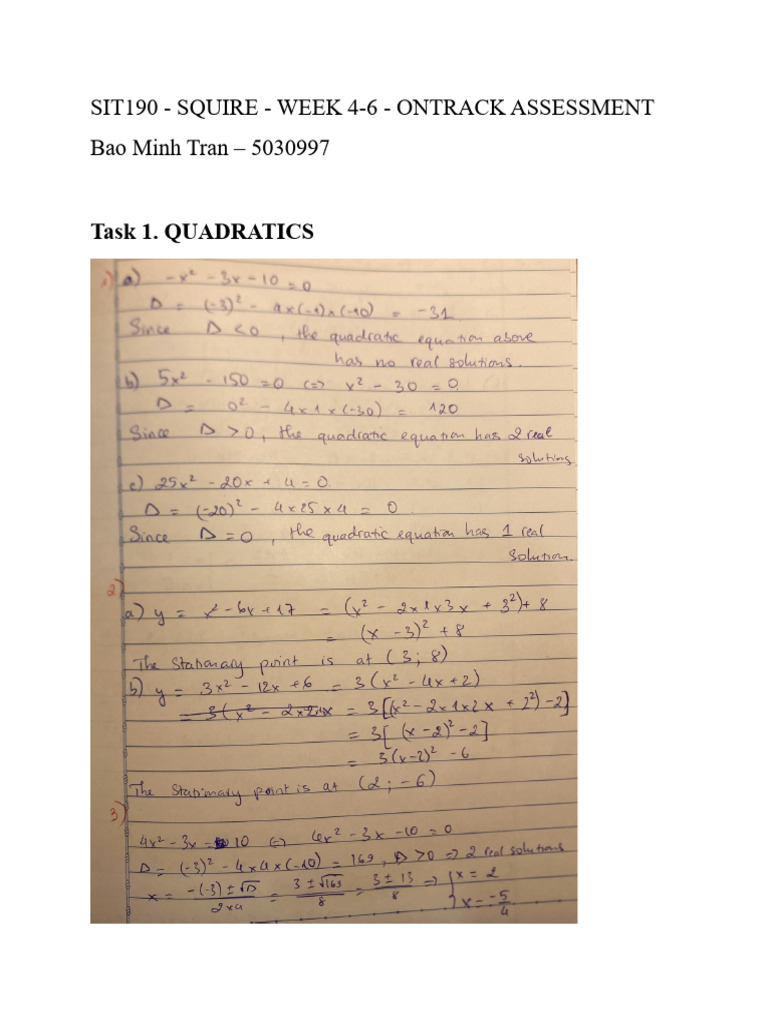 SIT190 - SQUIRE - WEEK 4-6 - ONTRACK ASSESSMENT
Bao Minh Tran – 5030997
Task 1. QUADRATICS
1) a) -x² - 3x - 10 = 0
D = (-3)² - 4×(-1)×(-10) = -31
Since D < 0, the quadratic equation above
has no real solutions.
b) 5x² - 150 = 0 (=) x² - 30 = 0
D = 0² - 4×1×(-30) = 120
Since D > 0, the quadratic equation has 2 real
solutions
c) 25x² - 20x + 4 = 0
D = (-20)² - 4×25×4 = 0
Since D = 0, the quadratic equation has 1 real
solution.
2)
a) y = x² - 6x + 17 = (x² - 2×1×3x + 3²) + 8
= (x - 3)² + 8
The Stationary point is at (3; 8)
b) y = 3x² - 12x + 6 = 3(x² - 4x + 2)
= 3[(x² - 2×1×2x + 2²) - 2]
= 3[(x - 2)² - 2]
= 3(x-2)² - 6
The Stationary point is at (2; -6)
3)
4x² - 3x = 10 (=) 4x² - 3x - 10 = 0
D = (-3)² - 4×4×(-10) = 169, D > 0 => 2 real solutions
x = -(-3) ± √D / 2×4 = 3 ± √169 / 8 = 3 ± 13 / 8 => x = 2
x = -5/4